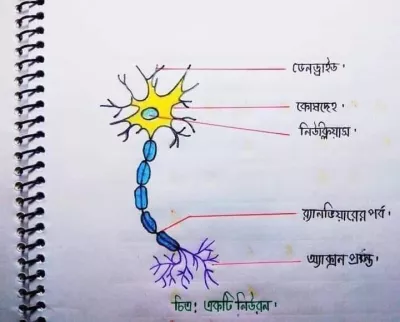 ডেনড্রাইট .
কোষদেহ .
নিউক্লিয়াস .
র‍্যানভিয়ারের পর্ব .
অ্যাক্সন প্রান্ত .
চিত্র : একটি নিউরন .